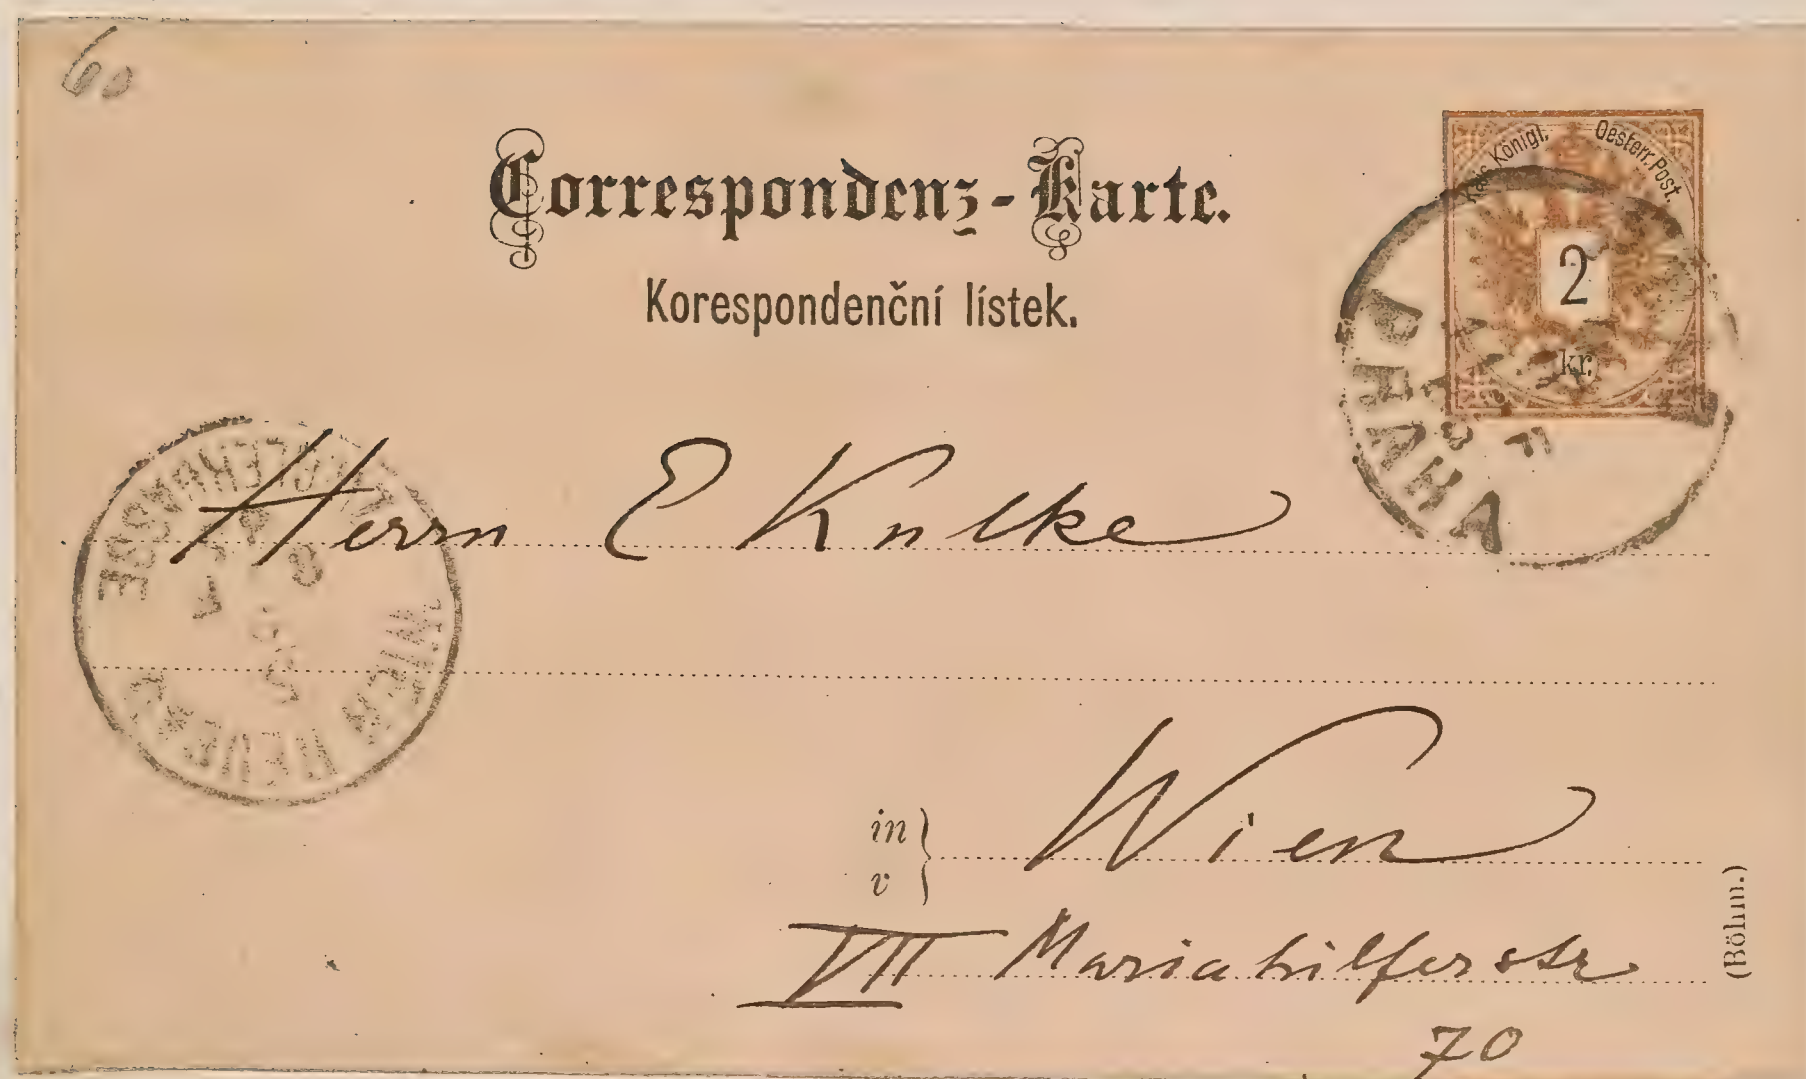 60
Correspondenz-Karte.
Korespondenční lístek.
Kais. Königl. Oesterr. Post.
2
kr.
PRAHA
Herrn E Kulke
WIEN NEUBAU
in
v
Wien
VII Mariahilferstr
70
(Böhm.)